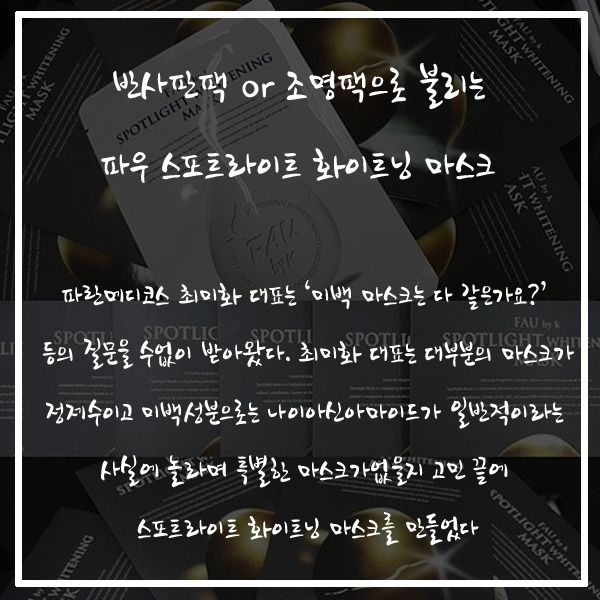 반사판팩 or 조명팩으로 불리는
파우 스포트라이트 화이트닝 마스크
파란메디코스 최미화 대표는 '미백 마스크는 다 같은가요?'
등의 질문을 수없이 받아왔다. 최미화 대표는 대부분의 마스크가
정제수이고 미백성분으로는 나이아신아마이드가 일반적이라는
사실에 놀라며 특별한 마스크가없을지 고민 끝에
스포트라이트 화이트닝 마스크를 만들었다
SPOTLIGHT WHITENING
MASK
FAU by k
FAU by k
SPOTLIGHT WHITENING
MASK